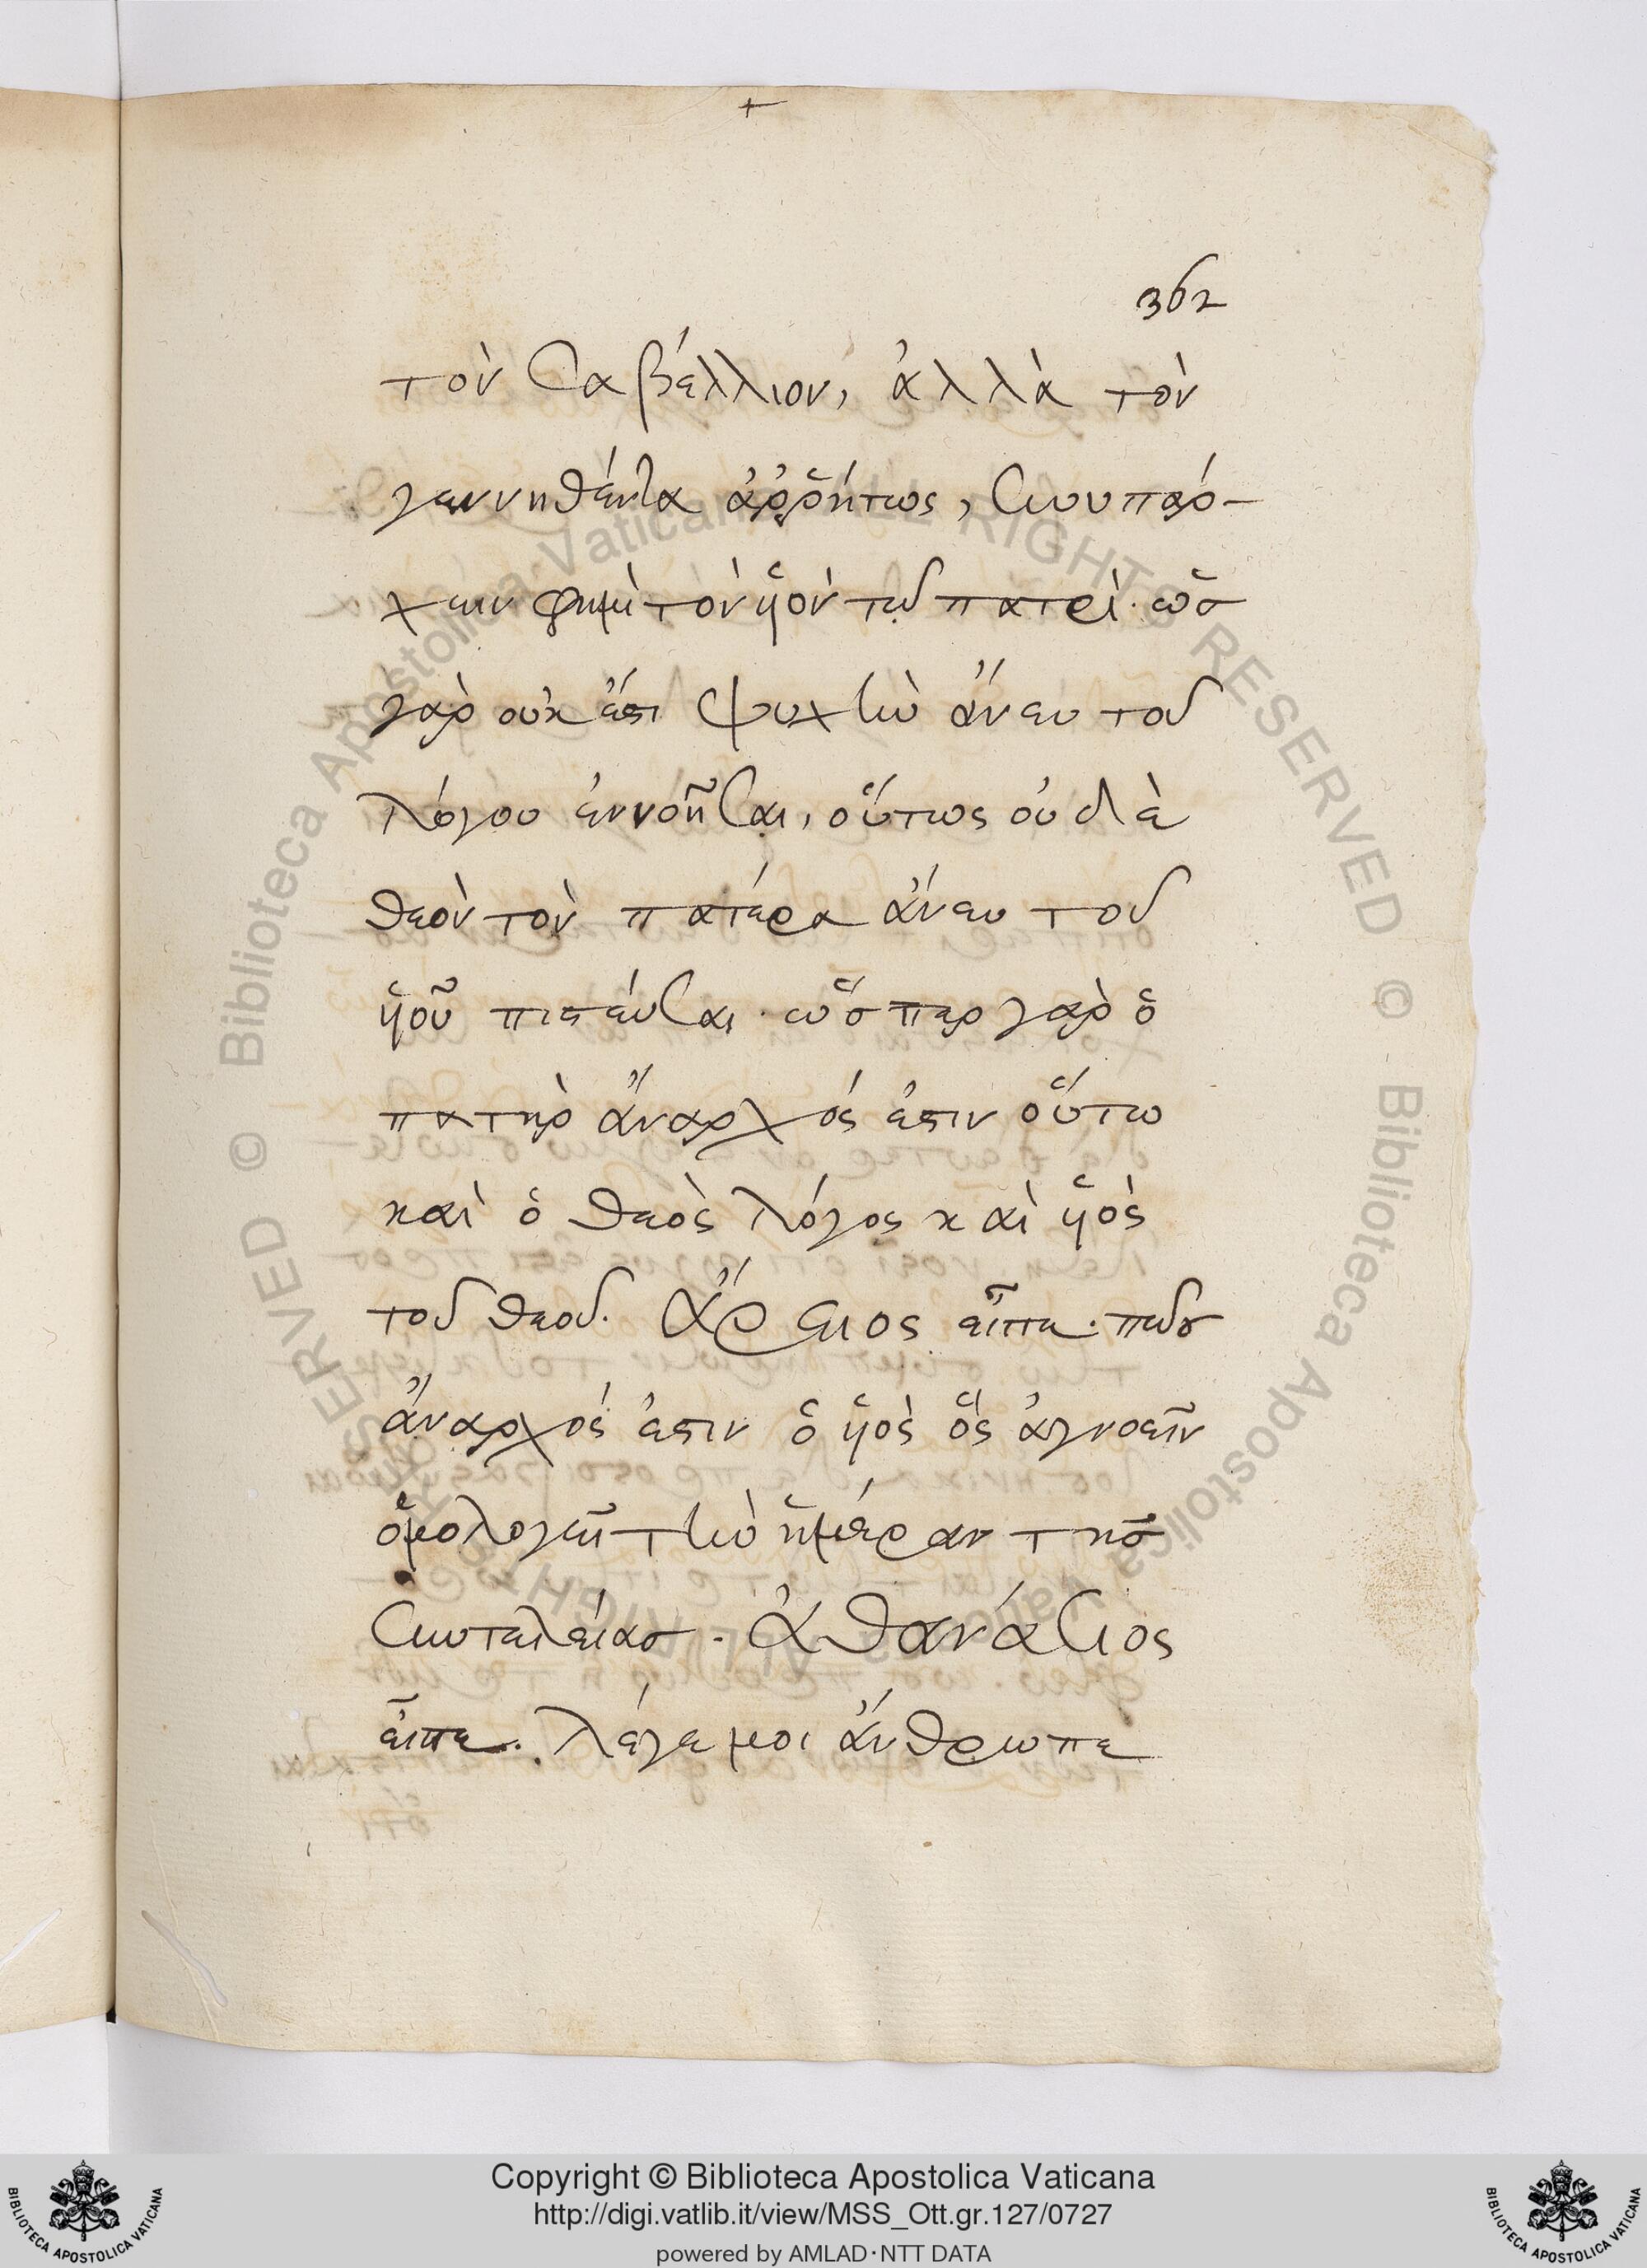 362
τὸν Σαβέλλιον, ἀλλὰ τὸν
γεννηθέντα ἀῤῥήτως, συνυπάρ-
χειν φημὶ τὸν ὑὸν τῷ πατρὶ. ὡς
γὰρ οὐκ ἔστι ψυχὴν ἄνευ τοῦ
λόγου ἐννοῆσαι, οὕτως οὐδὲ
θεὸν τὸν πατέρα ἄνευ τοῦ
ὑοῦ πιστεύσαι. ὥσπερ γὰρ ὁ
πατὴρ ἄναρχός ἐστιν οὕτω
καὶ ὁ θεὸς λόγος καὶ ὑὸς
τοῦ θεοῦ. Ἄρειος εἶπε. πῶς
ἄναρχός ἐστιν ὁ ὑὸς ὃς ἀγνοεῖν
ὁμολογεῖ τὴν ἡμέραν τῆς
συντελείας. Ἀθανάσιος
εἶπε. λέγε μοι ἄνθρωπε
© Biblioteca Apostolica Vaticana ALL RIGHTS RESERVED © Biblioteca Apostolica Vaticana ALL RIGHTS RESERVED
BIBLIOTECA APOSTOLICA VATICANA
Copyright © Biblioteca Apostolica Vaticana
http://digi.vatlib.it/view/MSS_Ott.gr.127/0727
powered by AMLAD·NTT DATA
BIBLIOTECA APOSTOLICA VATICANA